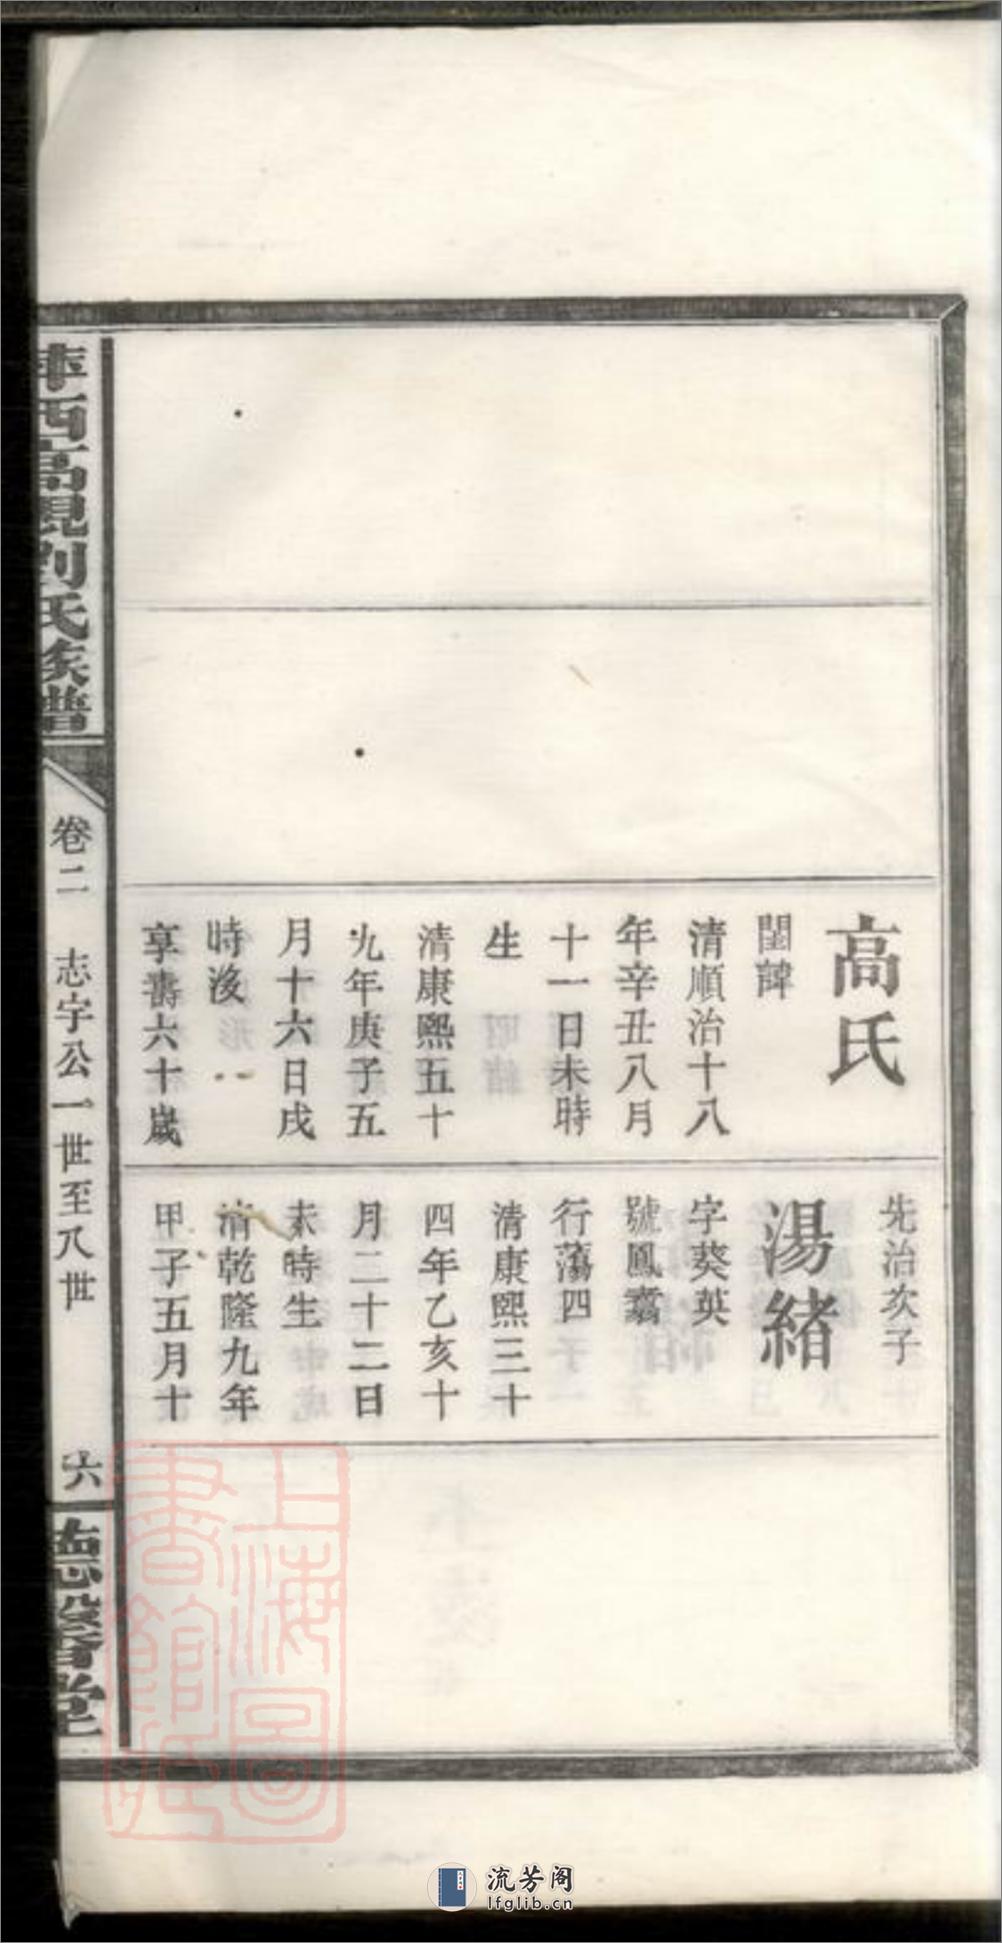 高氏
閨諱
清順治十八
年辛丑八月
十一日未時
生
清康熙五十
九年庚子五
月十六日戌
時歿
享壽六十歲
先治次子
湯緒
字葵英
號鳳翥
行蕩四
清康熙三十
四年乙亥十
月二十二日
未時生
清乾隆九年
甲子五月十
萍西高視劉氏族譜
卷二 志宇公一世至八世
六
德馨堂
上海圖書館藏
流芳阁
lfglib.cn